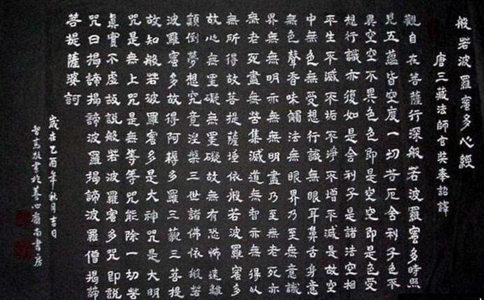 般若波羅蜜多心經
唐三藏法師玄奘奉詔譯
觀自在菩薩行深般若波羅蜜多時照
見五蘊皆空度一切苦厄舍利子色不
異空空不異色色即是空空即是色受
想行識亦復如是舍利子是諸法空相
不生不滅不垢不淨不增不減是故空
中無色無受想行識無眼耳鼻舌身意
無色聲香味觸法無眼界乃至無意識
界無無明亦無無明盡乃至無老死亦
無老死盡無苦集滅道無智亦無得以
無所得故菩提薩埵依般若波羅蜜多
故心無罣礙無罣礙故無有恐怖遠離
顛倒夢想究竟涅槃三世諸佛依般若
波羅蜜多故得阿耨多羅三藐三菩提
故知般若波羅蜜多是大神咒是大明
咒是無上咒是無等等咒能除一切苦
真實不虛故說般若波羅蜜多咒即說
咒曰揭諦揭諦波羅揭諦波羅僧揭諦
菩提薩婆訶
乙酉年秋月吉日